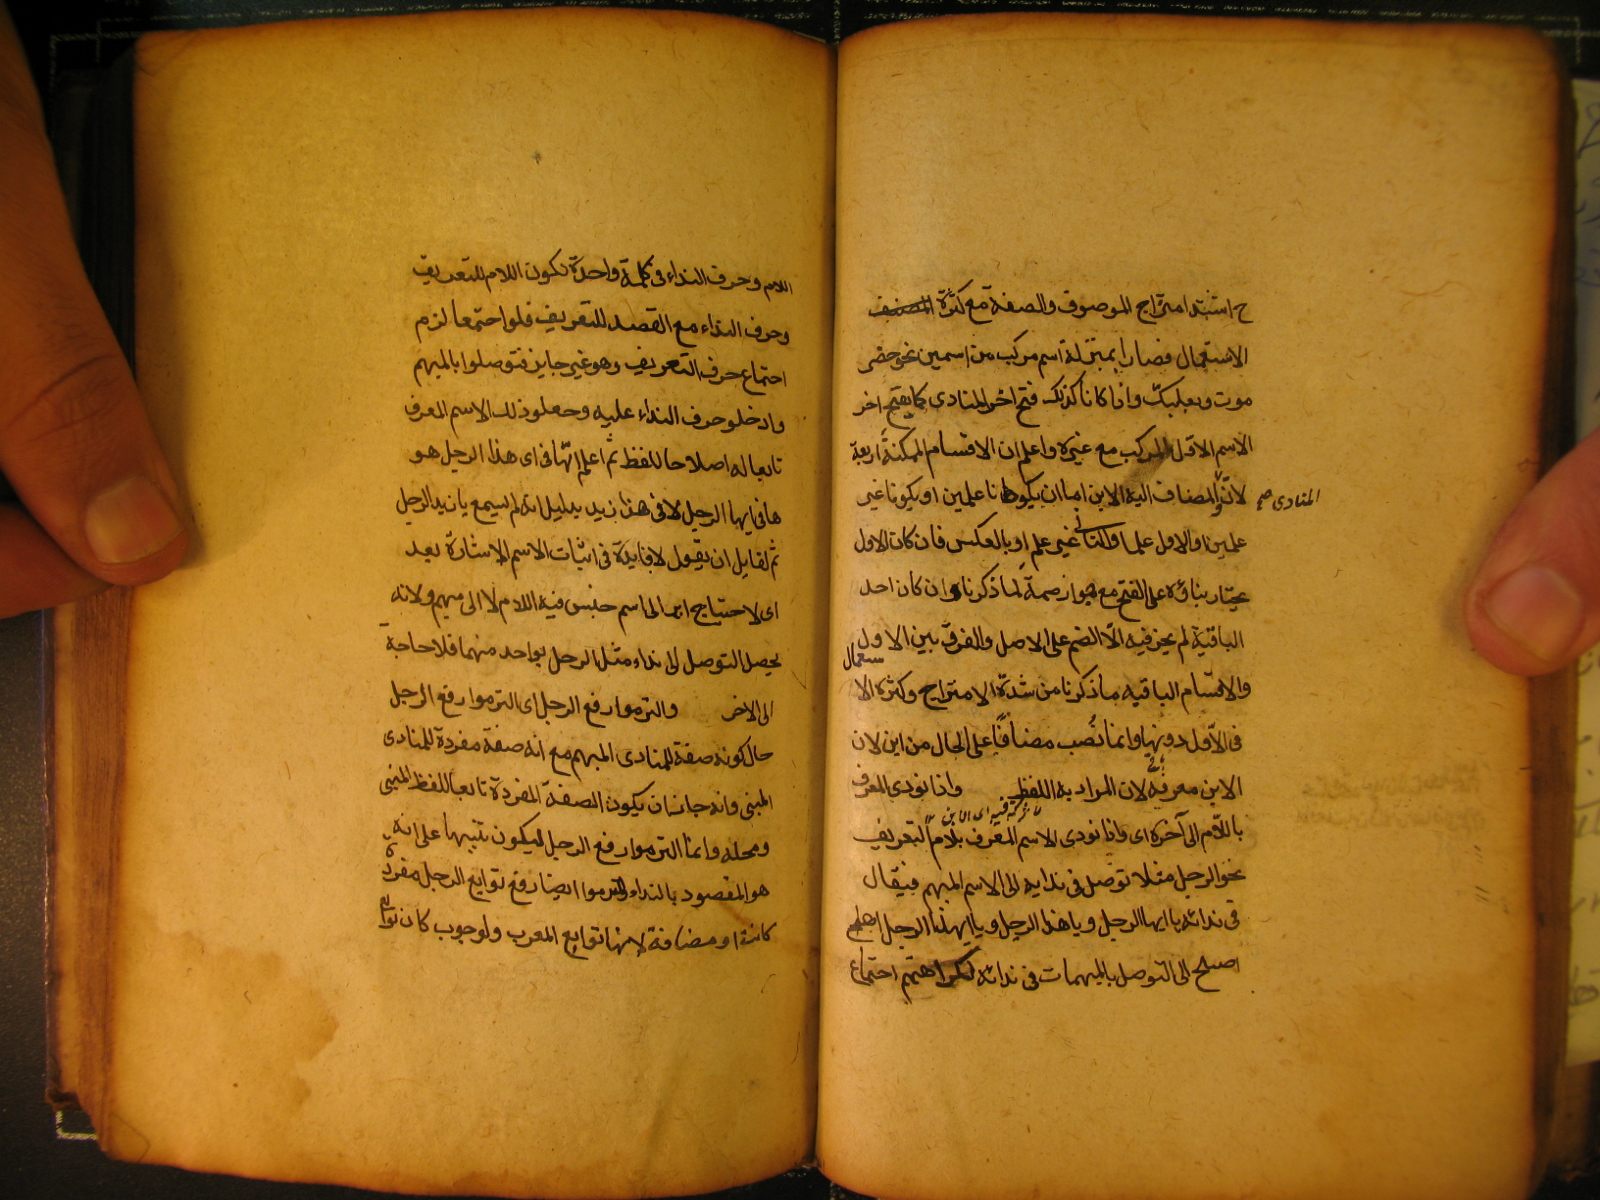 ح اشتد امتزاج الموصوف والصفة مع كثرة المصنف
الاستعمال فصارا بمنزلة اسم مركب من اسمين نحو حضر
موت وبعلبك واذا كانا كذلك فتح اخر المنادى كما يفتح اخر
الاسم الاول المركب مع غيره واعلم ان الاقسام الممكنة اربعة
لان والمضاف اليه الابن اما ان يكونا علمين او يكونا غير
المنادى صح
علمين او الاول علما والثاني غير علم او بالعكس فان كان الاول
يختار بناؤه على الفتح مع جواز ضمه لما ذكرنا وان كان احد
الباقية لم يجز فيه الا الضم على الاصل والفرق بين الاول
والاقسام الباقيه ما ذكرنا من شدة الامتزاج وكثرة الا
ستعمال
فى الاول دونها وانما نصب مضافا على الحال من ابن لان
الابن معرفة لان المراد به اللفظ واذا نودى المعرف
باللام الى آخره اى واذا نودى الاسم المعرف بلام التعريف
نحو الرجل مثلا توصل فى ندايه الى الاسم المبهم فيقال
فى ندائه يا ايها الرجل ويا هذا الرجل ويا ايهذا الرجل
اصلح الى التوصل بالمبهمات فى ندائه لكراهتهم اجتماع
اللام وحرف النداء فى كلمة واحدة لكون اللام للتعريف
وحرف النداء مع القصد للتعريف فلو اجتمعا لزم
اجتماع حرف التعريف وهو غير جايز فتوصلوا بالمبهم
وادخلو حرف النداء عليه وجعلو ذلك الاسم المعرف
تابعا له اصلاحا للفظ ثم اعلم انها فى اى هذا الرجل هو
ها فى ايها الرجل لا فى هذا زيد بدليل انه لم يسمع يا زيد الرجل
ثم لقايل ان يقول لا فايدة فى اثبات الاسم الاشارة بعد
اى لاحتياج اى الى اسم جنس فيه اللام لا الى مبهم ولانه
يحصل التوصل الى نداء مثل الرجل بواحد منهما فلا حاجة
الى الاخر والتزموا رفع الرجل اى التزموا رفع الرجل
حال كونه صفة للمنادى المبهم مع انه صفة مفردة للمنادى
المبنى وانه جاز ان يكون الصفة المفردة تابعا للفظ المبنى
ومحله وانما التزموا رفع الرجل ليكون تنبيها على انه
هو المقصود بالنداء والتزموا ايضا رفع توابع الرجل مفردة
كانت او مضافة لانها توابع المعرب ولوجوب كا ن توابع